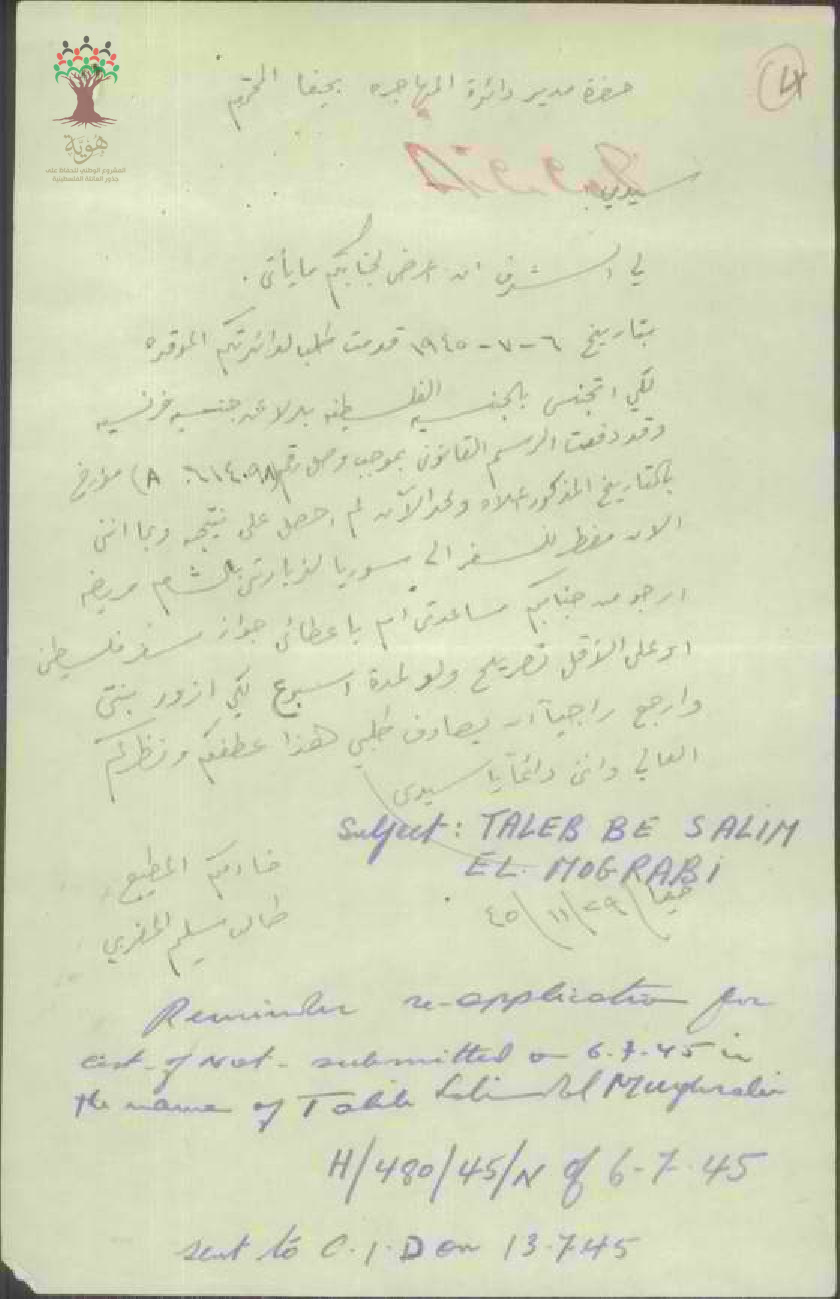 هوية
المشروع الوطني للحفاظ على
جذور العائلة الفلسطينية
4
حضرة مدير دائرة المهاجره بحيفا المحترم
سيدي
لي الشرف ان اعرض لجنابكم ما يأتي .
بتاريخ ٦-٧-١٩٤٥ قدمت طلبا لدائرتكم الموقره
لكي اتجنس بالجنسيه الفلسطينه بدلا عن جنسيه فرنسيه
وقد دفعت الرسم القانوني بموجب وصل رقم (A ٠٦١٤٠٩٨) مؤرخ
بالتاريخ المذكور اعلاه ولحد الآن لم احصل على نتيجه وبما انني
الان مضطر للسفر الى سوريا لزيارتي بالشام مريضه
ارجو من جنابكم مساعدتي ام باعطائي جواز سفر فلسطيني
او على الاقل تصريح ولو لمدة اسبوع لكي ازور بنتي
وارجع راجياً ان يصادف طلبي هذا عطفكم ونظركم
العالي وانني دائماً يا سيدي
Subject: TALEB BE SALIM
EL. MOGRABI
خادمكم المطيع
حيفا ٢٩/١١/٤٥
طالب سليم المغربي
Reminder re-application for
cert. of Nat. submitted on 6.7.45 in
the name of Talib Selim El Mughrabi
H/480/45/N of 6-7-45
sent to C.I.D on 13.7.45